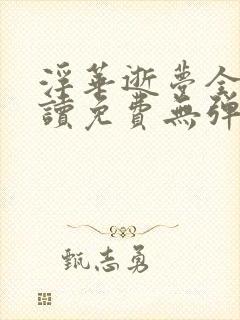 淫華逝夢全
讀免費無彈
甄志勇